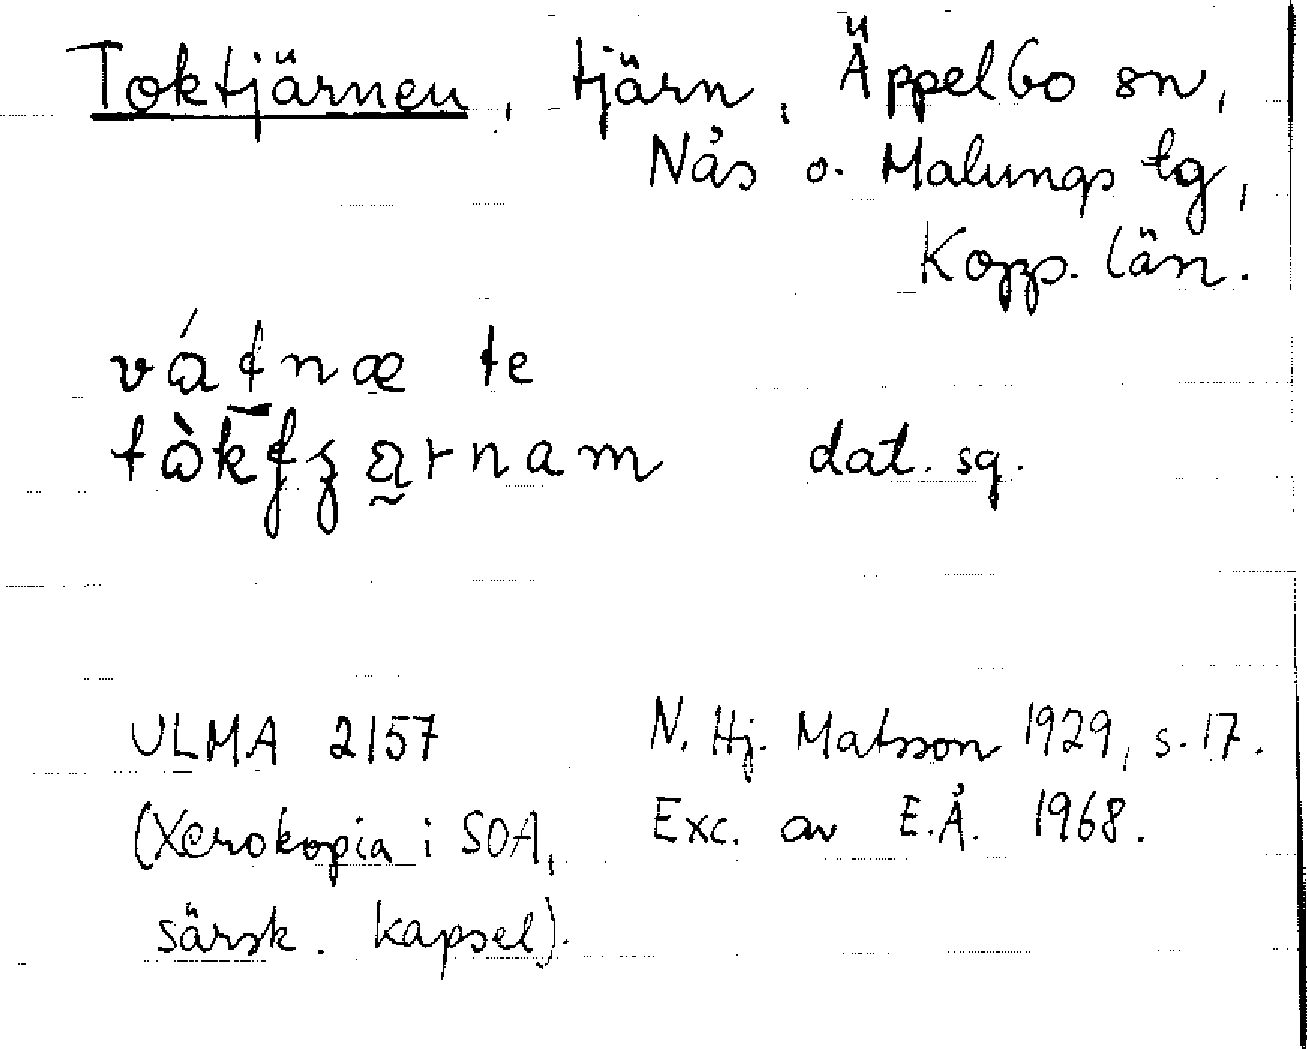 Toktjärnen, tjärn, Äppelbo sn,
Nås o. Malungs tg,
Kopp. län.
te
dat. sg.
ULMA 2157 N. Hj. Matsson 1929, s. 17.
(Xerokopia i SOA, Exc. av E.Å. 1968.
särsk. kapsel).